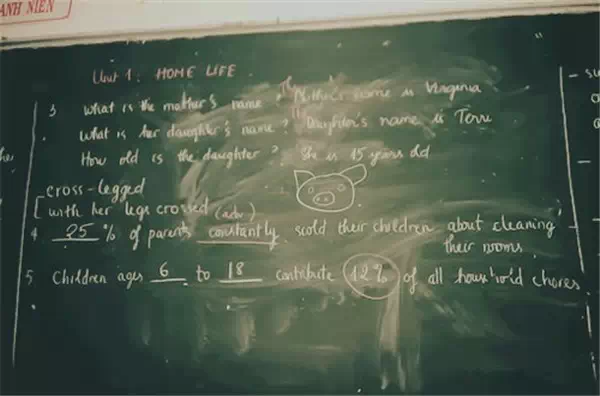 ANH NIÊN
Unit 1: HOME LIFE
3 What is the mother's name? The Mother's name is Virginia
What is her daughter's name? The Daughter's name is Terri
How old is the daughter? She is 15 years old
cross-legged
with her legs crossed (adv)
4 25 % of parents constantly scold their children about cleaning
their rooms
5 Children ages 6 to 18 contribute 12% of all household chores